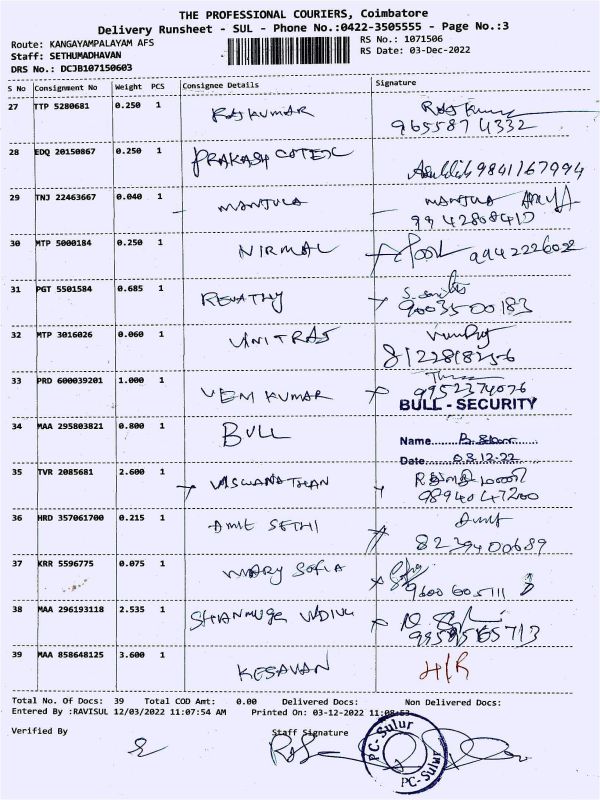 THE PROFESSIONAL COURIERS, Coimbatore
Delivery Runsheet - SUL - Phone No.:0422-3505555 - Page No.:3
Route: KANGAYAMPALAYAM AFS RS No.: 1071506
Staff: SETHUMADHAVAN RS Date: 03-Dec-2022
DRS No.: DCJB107150603
S No Consignment No Weight PCS Consignee Details Signature
27 TTP 5280681 0.250 1 RAJKUMAR Raj Kumar
9655874332
28 EDQ 20150867 0.250 1 PRAKASH COTEX
9841167994
29 TNJ 22463667 0.040 1 MANJULA MANJULA
9942808410
30 MTP 5000184 0.250 1 NIRMAL 9942226022
31 PGT 5501584 0.685 1 REVATHY
9003500183
32 MTP 3016026 0.060 1 VINITRAJ
8122818256
33 PRD 600039201 1.000 1 VEM KUMAR
9952374076
BULL - SECURITY
34 MAA 295803821 0.800 1 BULL
Name
Date 03.12.22
35 TVR 2085681 2.600 1 VISWANATHAN
9894047200
36 HRD 357061700 0.215 1 AMIT SETHI Amit
8239400689
37 KRR 5596775 0.075 1 MARY SOFIA
9600605711
38 MAA 296193118 2.535 1 SHANMUGA VDIVU
39 MAA 858648125 3.600 1 KESAVAN H/R
Total No. Of Docs: 39 Total COD Amt: 0.00 Delivered Docs: Non Delivered Docs:
Entered By :RAVISUL 12/03/2022 11:07:54 AM Printed On: 03-12-2022
Verified By Staff Signature
PC-Sulur
PC-Sulur